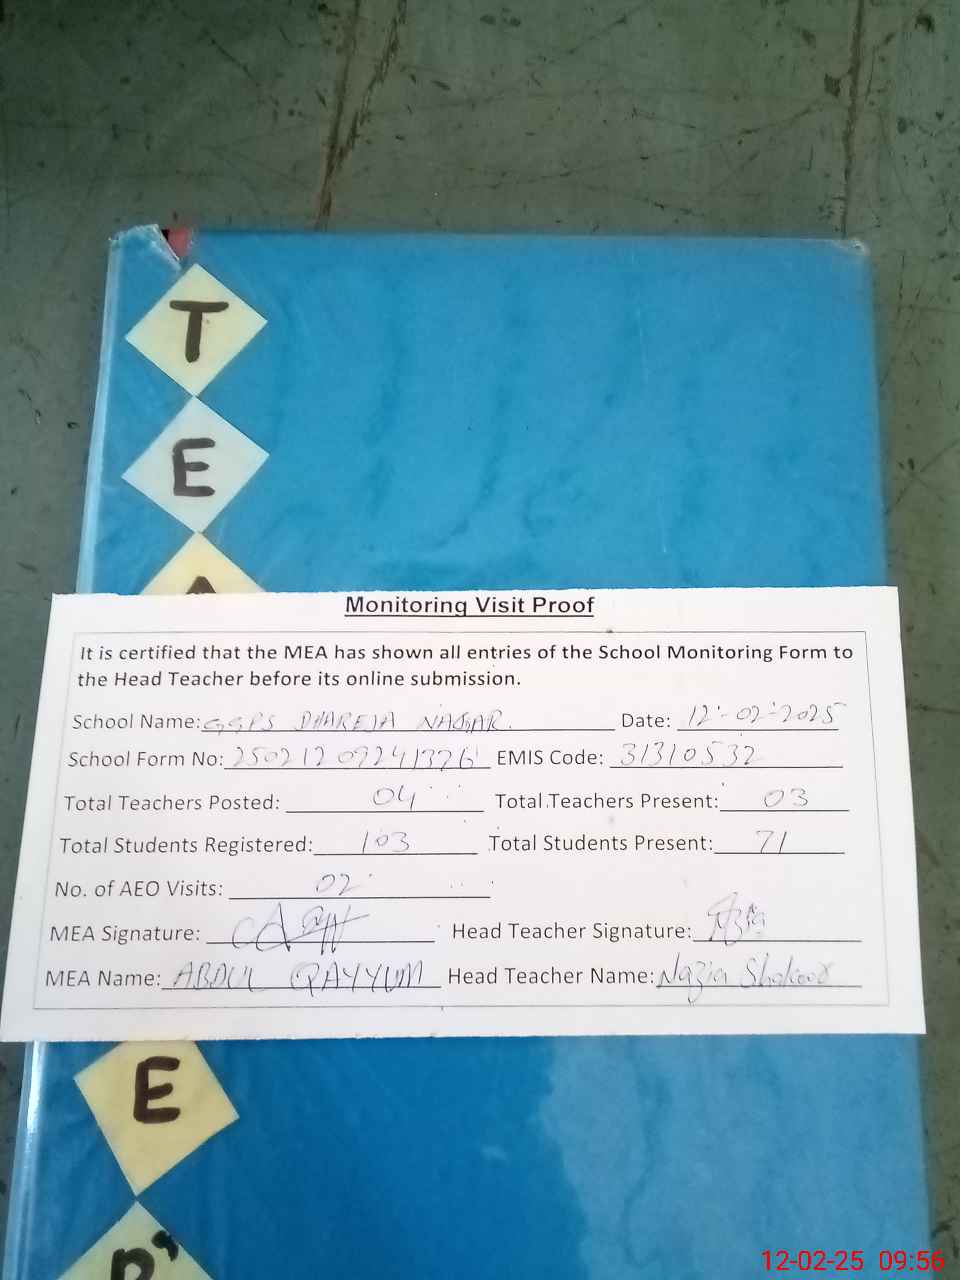 T
E
A
Monitoring Visit Proof
It is certified that the MEA has shown all entries of the School Monitoring Form to
the Head Teacher before its online submission.
School Name: GGPS DHAREJA NAGAR. Date: 12-02-2025
School Form No: 250212092413726 EMIS Code: 31310532
Total Teachers Posted: 04 Total Teachers Present: 03
Total Students Registered: 103 Total Students Present: 71
No. of AEO Visits: 02
MEA Signature: Head Teacher Signature:
MEA Name: ABDUL QAYYUM Head Teacher Name: Nazia Shakoor
E
R's
12-02-25 09:56